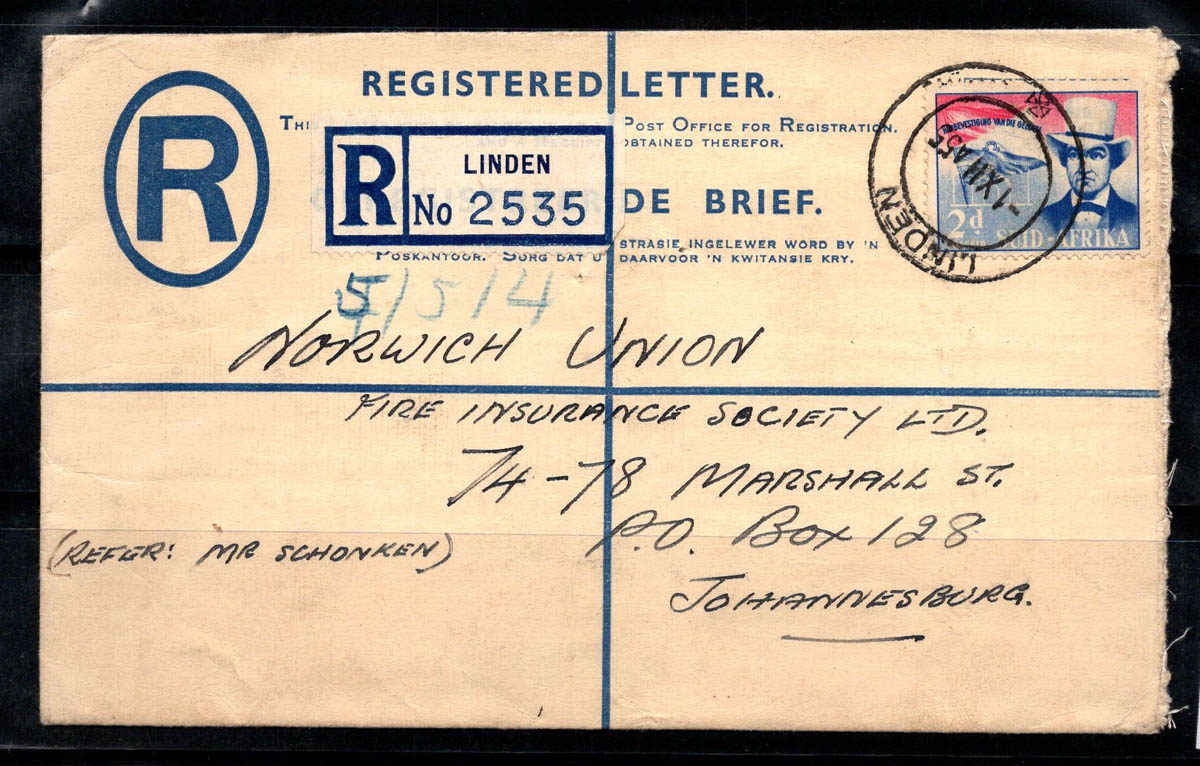 REGISTERED LETTER.
R
THI POST OFFICE FOR REGISTRATION.
OBTAINED THEREFOR.
R LINDEN
No 2535
DE BRIEF.
STRASIE INGELEWER WORD BY 'N
POSKANTOOR. SORG DAT U DAARVOOR 'N KWITANSIE KRY.
LINDEN
-1 XII
BEVESTIGING VAN DIE
2d
SUID-AFRIKA
5/5/4
NORWICH UNION
FIRE INSURANCE SOCIETY LTD.
74-78 MARSHALL ST.
P.O. BOX 128
(REFER: MR SCHONKEN)
JOHANNESBURG.